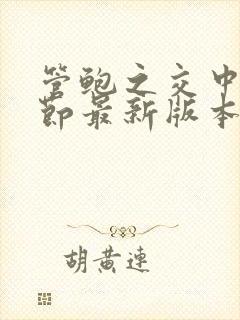 管鲍之交中
节最新版本
胡黄连